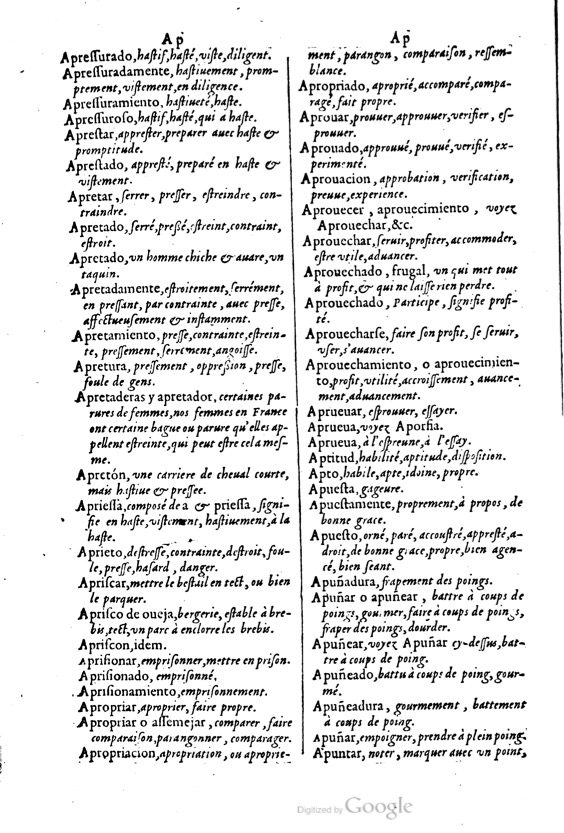 Ap
Apreſſurado, haſtif, haſté, viſte, diligent.
Apreſſuradamente, haſtiuement, prom-
ptement, viſtement, en diligence.
Apreſſuramiento, haſtiueté, haſte.
Apreſſuroſo, haſtif, haſté, qui a haſte.
Apreſtar, appreſter, preparer auec haſte &
promptitude.
Apreſtado, appreſté, preparé en haſte &
viſtement.
Apretar, ſerrer, preſſer, eſtreindre, con-
traindre.
Apretado, ſerré, preßé, eſtreint, contraint,
eſtroit.
Apretado, vn homme chiche & auare, vn
taquin.
Apretadamente, eſtroitement, ſerrément,
en preſſant, par contrainte, auec preſſe,
affectueuſement & inſtamment.
Apretamiento, preſſe, contrainte, eſtrein-
te, preſſement, ſerrement, angoiſſe.
Apretura, preſſement, oppreßion, preſſe,
foule de gens.
Apretaderas y apretador, certaines pa-
rures de femmes, nos femmes en France
ont certaine bague ou parure qu'elles ap-
pellent eſtreinte, qui peut eſtre cela meſ-
me.
Apretón, vne carriere de cheual courte,
mais haſtiue & preſſee.
Aprieſſa, compoſé de a & prieſſa, ſigni-
fie en haſte, viſtement, haſtiuement, à la
haſte.
Aprieto, deſtreſſe, contrainte, deſtroit, fou-
le, preſſe, haſard, danger.
Apriſcar, mettre le beſtail en tect, ou bien
le parquer.
Apriſco de oueja, bergerie, eſtable à bre-
bis, tect, vn parc à enclorre les brebis.
Apriſcon, idem.
Apriſionar, empriſonner, mettre en priſon.
Apriſionado, empriſonné.
Apriſionamiento, empriſonnement.
Apropriar, aproprier, faire propre.
Apropriar o aſſemejar, comparer, faire
comparaiſon, parangonner, comparager.
Apropriacion, apropriation, ou aproprie-
Ap
ment, parangon, comparaiſon, reſſem-
blance.
Apropriado, aproprié, accomparé, compa-
ragé, fait propre.
Aprouar, prouuer, approuuer, verifier, eſ-
prouuer.
Aprouado, approuué, prouué, verifié, ex-
perimenté.
Aprouacion, approbation, verification,
preuue, experience.
Aprouecer, aprouecimiento, voyez
Aprouechar, &c.
Aprouechar, ſeruir, profiter, accommoder,
eſtre vtile, aduancer.
Aprouechado, frugal, vn qui met tout
à profit, & qui ne laiſſe rien perdre.
Aprouechado, Participe, ſignifie profi-
té.
Aprouecharſe, faire ſon profit, ſe ſeruir,
vſer, s'auancer.
Aprouechamiento, o aprouecimien-
to, profit, vtilité, accroiſſement, auance-
ment, aduancement.
Aprueuar, eſprouuer, eſſayer.
Aprueua, voyez Aporfia.
Aprueua, à l'eſpreune, à l'eſſay.
Aptitud, habilité, aptitude, diſpoſition.
Apto, habile, apte, idoine, propre.
Apueſta, gageure.
Apueſtamente, proprement, à propos, de
bonne grace.
Apueſto, orné, paré, accouſtré, appreſté, a-
droit, de bonne grace, propre, bien agen-
cé, bien ſeant.
Apuñadura, frapement des poings.
Apuñar o apuñear, battre à coups de
poings, gourmer, faire à coups de poings,
fraper des poings, dourder.
Apuñear, voyez Apuñar cy-deſſus, bat-
tre à coups de poing.
Apuñeado, battu à coups de poing, gour-
mé.
Apuñeadura, gourmement, battement
à coups de poing.
Apuñar, empoigner, prendre à plein poing.
Apuntar, noter, marquer auec vn point,
Digitized by Google